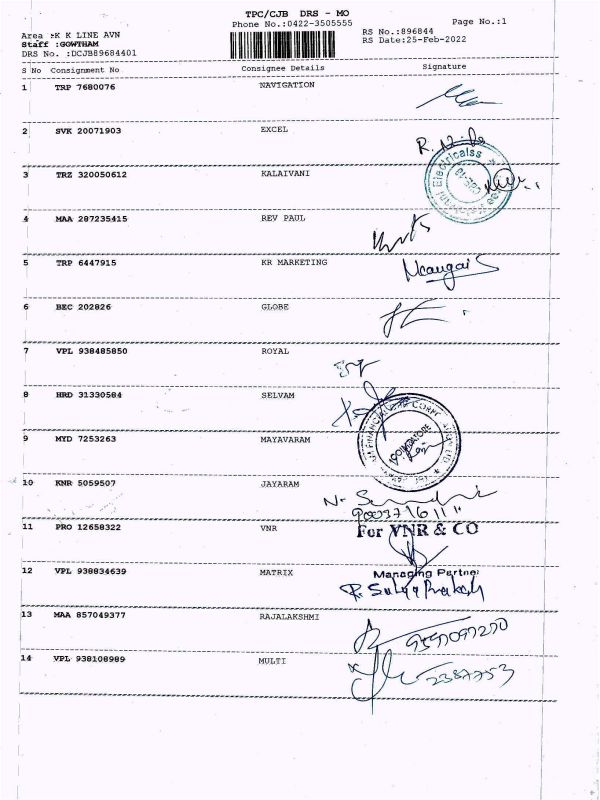 TPC/CJB DRS - MO
Phone No.:0422-3505555
Page No.:1
Area :K K LINE AVN
RS No.:896844
Staff :GOWTHAM
RS Date:25-Feb-2022
DRS No. :DCJB89684401
S No Consignment No Consignee Details Signature
1 TRP 7680076 NAVIGATION
2 SVK 20071903 EXCEL
3 TRZ 320050612 KALAIVANI
Electricalss
4 MAA 287235415 REV PAUL
5 TRP 6447915 KR MARKETING
6 BEC 202826 GLOBE
7 VPL 938485850 ROYAL
8 HRD 31330584 SELVAM
9 MYD 7253263 MAYAVARAM
COIMBATORE
10 KNR 5059507 JAYARAM
11 PRO 12658322 VNR
For VNR & CO
12 VPL 938834639 MATRIX
Managing Partner
13 MAA 857049377 RAJALAKSHMI
14 VPL 938108989 MULTI
2387753